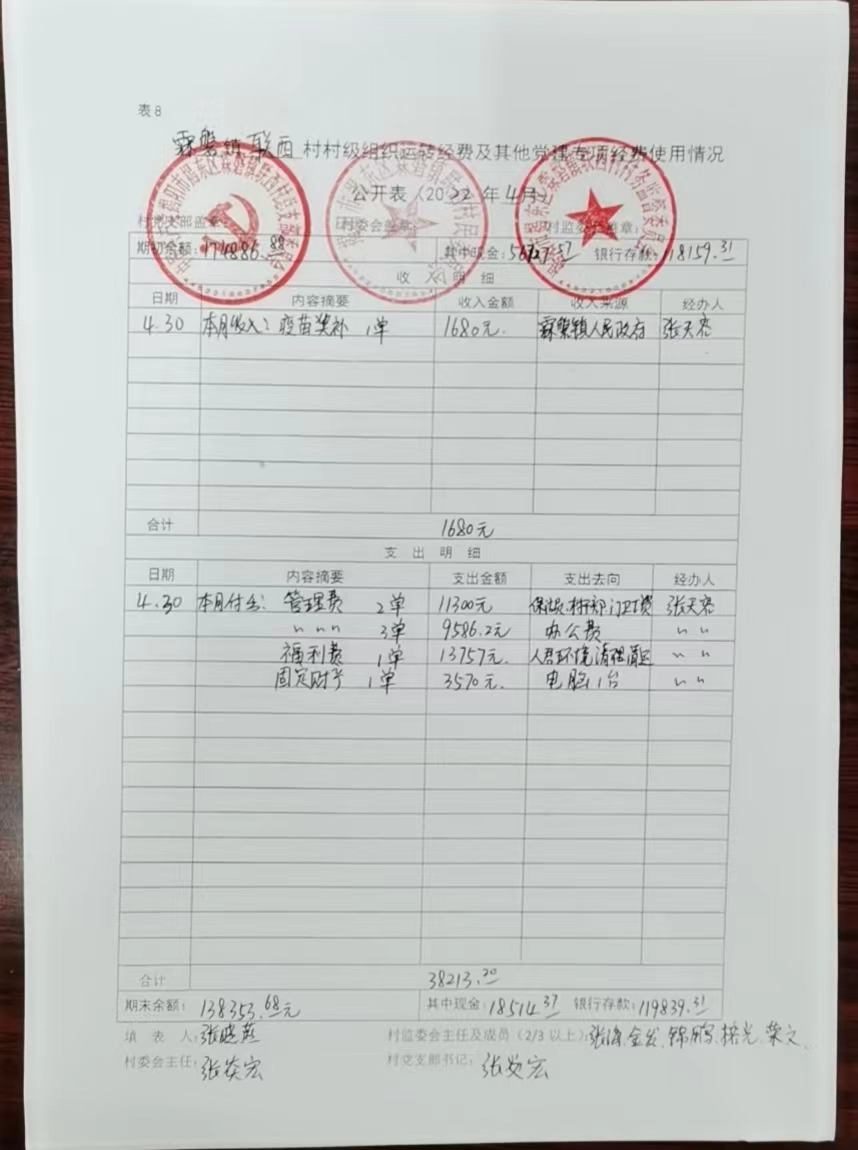 表8
霖磐镇联西村村级组织运转经费及其他党建专项经费使用情况
公开表(2022年4月)
村党支部盖章: 村委会盖章: 村监委会盖章:
期初余额:174886.88 其中现金:56727.57 银行存款:118159.31
收入明细
日期 内容摘要 收入金额 收入来源 经办人
4.30 本月收入:疫苗奖补 1单 1680元. 霖磐镇人民政府 张天容
合计 1680元
支出明细
日期 内容摘要 支出金额 支出去向 经办人
4.30 本月付出:管理费 2单 11300元 张天容
〃〃〃 3单 9586.2元 办公费 〃〃
福利费 1单 13757元 人居环境清理 〃〃
固定财产 1单 3570元. 电脑1台 〃〃
合计 38213.20
期末余额:138353.68元 其中现金:18514.37 银行存款:119839.31
填表人:张晓燕 村监委会主任及成员(2/3以上):
村委会主任: 村党支部书记: